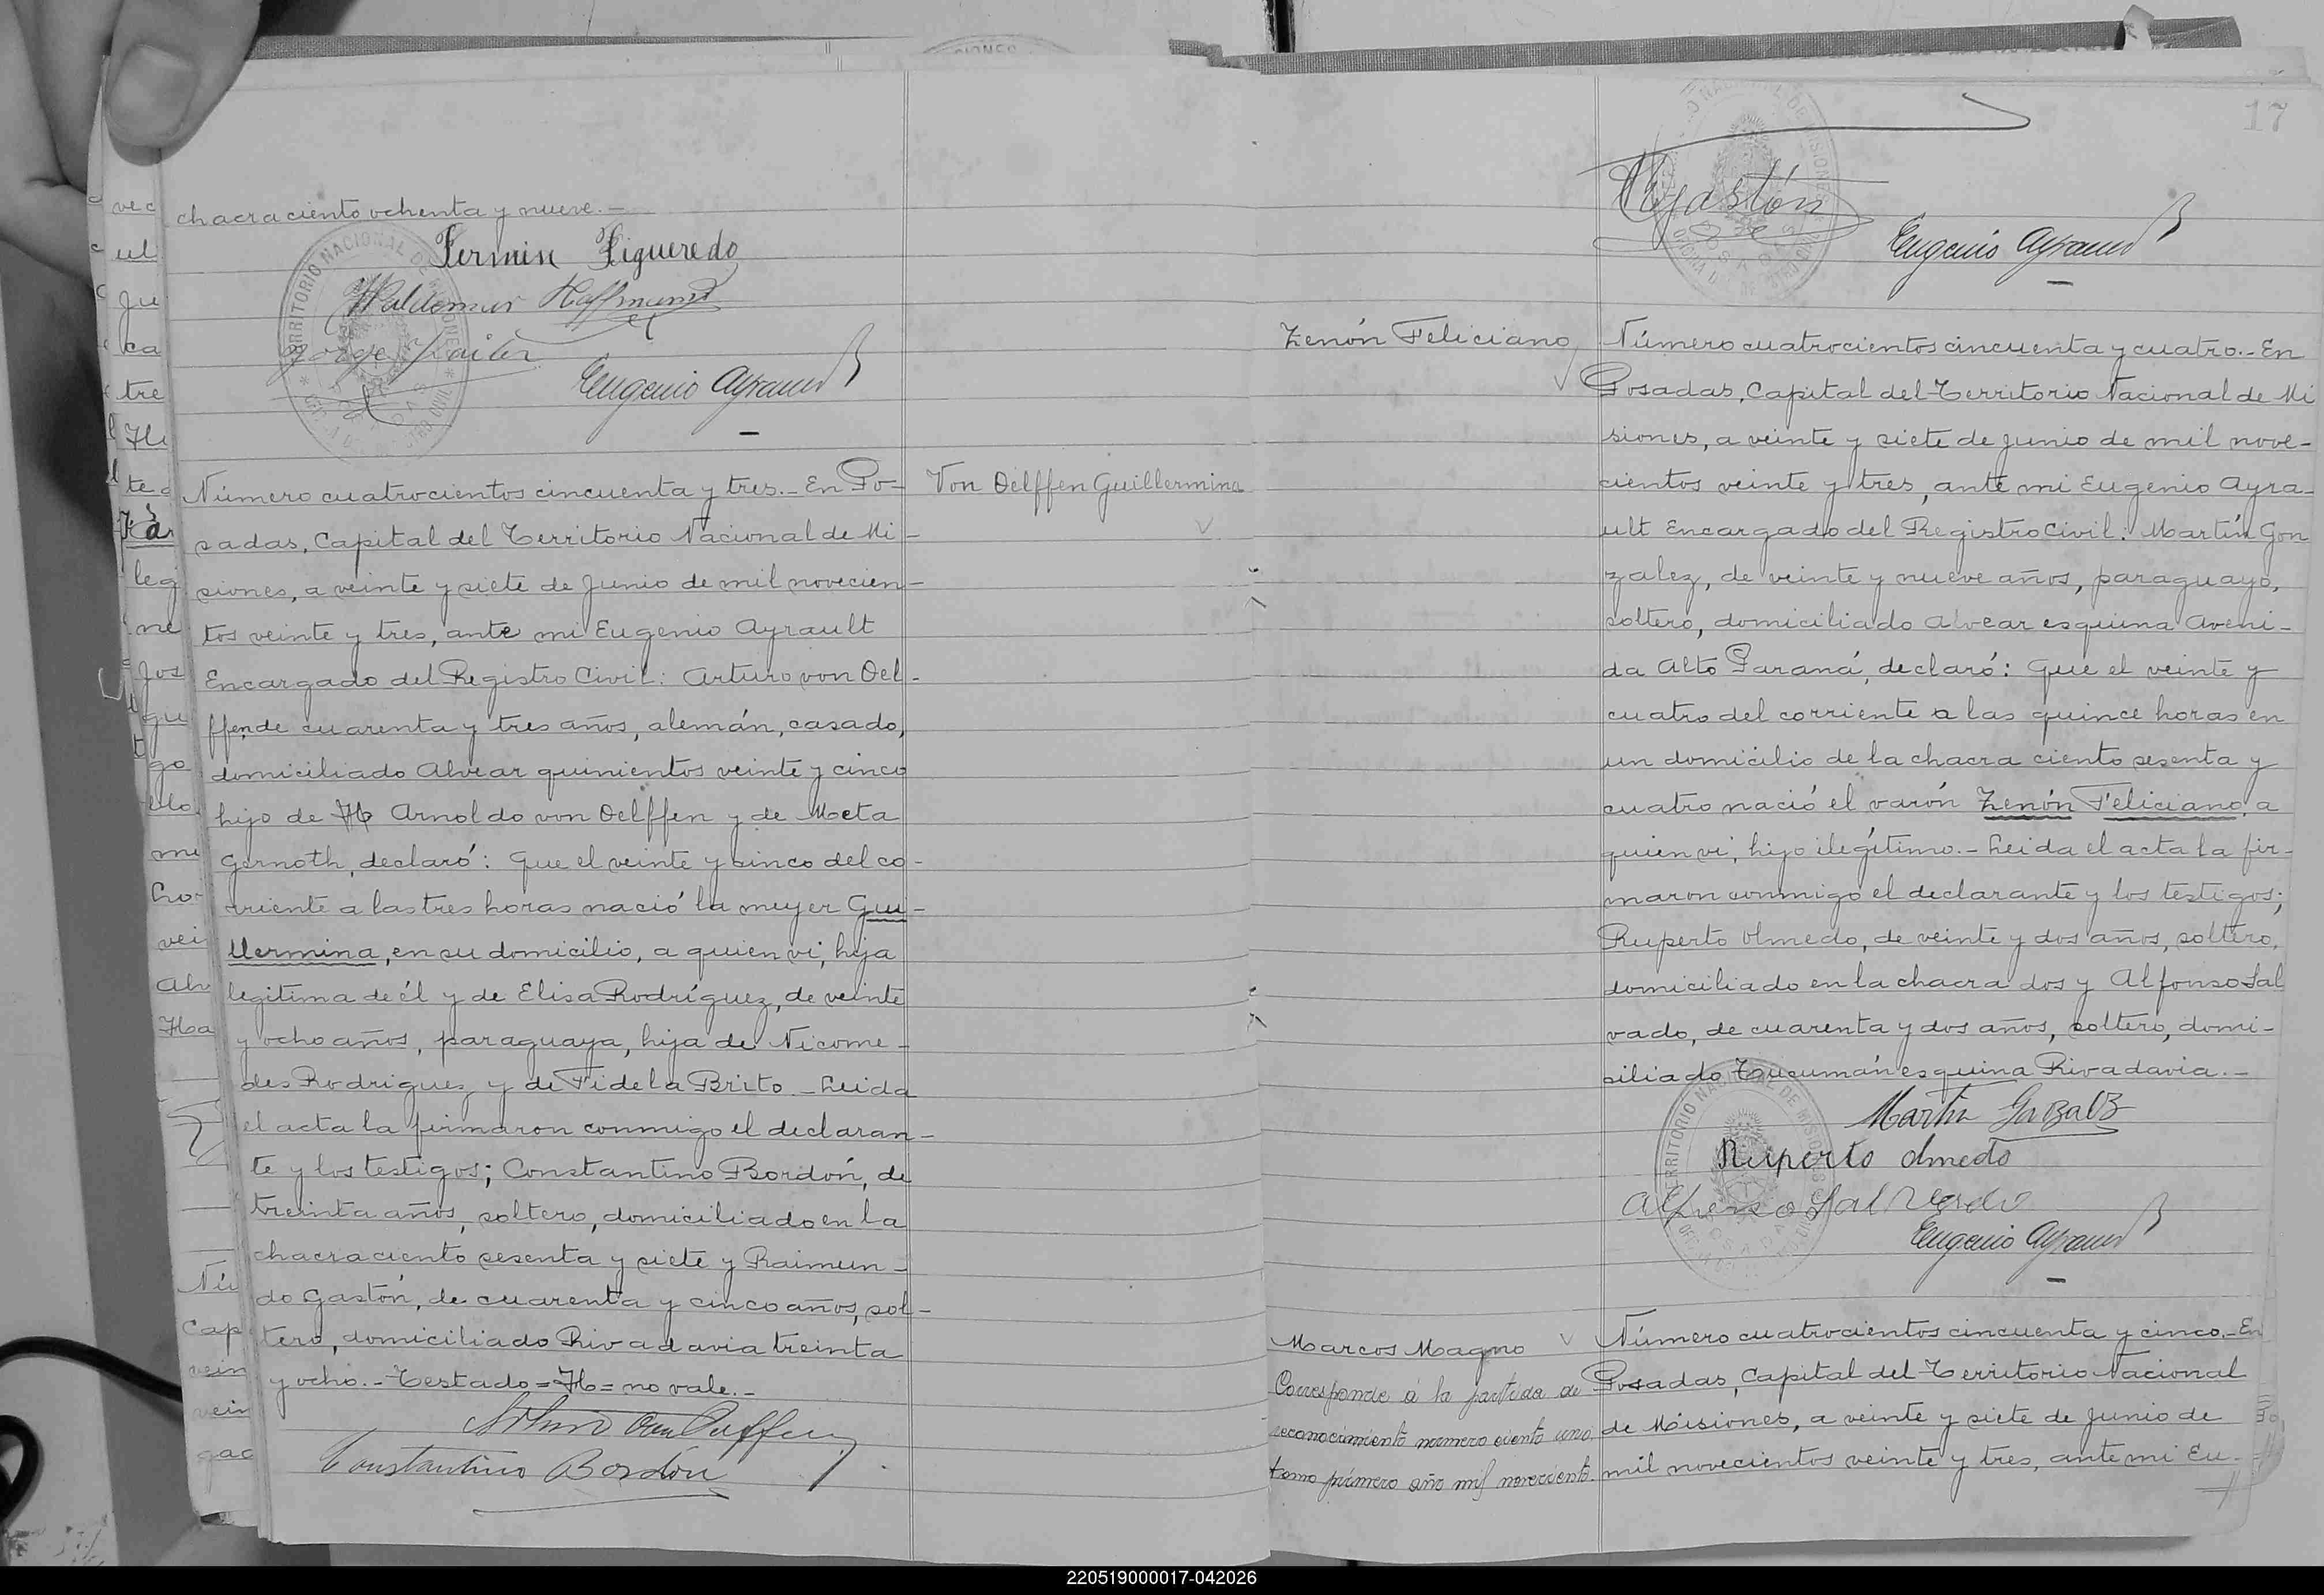 chacra ciento ochenta y nueve.-
Fermin Figueredo
Waldemar Hoffmann
Jorge
Eugenio Ayrault
Número cuatrocientos cincuenta y tres.- En Po-
sadas, Capital del Territorio Nacional de Mi-
siones, a veinte y siete de Junio de mil novecien-
tos veinte y tres, ante mi Eugenio Ayrault
Encargado del Registro Civil: Arturo von Oel-
ffen, de cuarenta y tres años, alemán, casado,
domiciliado Alvear quinientos veinte y cinco
hijo de Hb Arnoldo von Oelffen y de Meta
Gernoth, declaró: Que el veinte y cinco del co-
rriente a las tres horas nació la mujer Gui-
llermina, en su domicilio, a quien vi, hija
legitima de él y de Elisa Rodríguez, de veinte
y ocho años, paraguaya, hija de Nicome-
des Rodriguez y de Fidela Brito.- Leida
el acta la firmaron conmigo el declaran-
te y los testigos; Constantino Bordón, de
treinta años, soltero, domiciliado en la
chacra ciento sesenta y siete y Raimun-
do Gastón, de cuarenta y cinco años, sol-
tero, domiciliado Rivadavia treinta
y ocho.- Testado=Hb=no vale.-
Arturo von Oelffen
Constantino Bordón
Von Oelffen Guillermina
17
RGastón
Eugenio Ayrault
Zenón Feliciano
Número cuatrocientos cincuenta y cuatro.- En
Posadas, Capital del Territorio Nacional de Mi
siones, a veinte y siete de Junio de mil nove-
cientos veinte y tres, ante mi Eugenio Ayra-
ult Encargado del Registro Civil: Martín Gon
zalez, de veinte y nueve años, paraguayo,
soltero, domiciliado Alvear esquina Aveni-
da Alto Paraná, declaró: Que el veinte y
cuatro del corriente a las quince horas en
un domicilio de la chacra ciento sesenta y
cuatro nació el varón Zenón Feliciano, a
quien vi, hijo ilegítimo.- Leida el acta la fir-
maron conmigo el declarante y los testigos;
Ruperto Olmedo, de veinte y dos años, soltero,
domiciliado en la chacra dos y Alfonso Sal
vado, de cuarenta y dos años, soltero, domi-
siliado Tucumán esquina Rivadavia.-
Martin Gonzalz
Ruperto Olmedo
Alfonso Salvado
Eugenio Ayrault
Marcos Magno
Corresponde á la partida de
reconocimiento numero ciento uno
tomo primero año mil novecientos
Número cuatrocientos cincuenta y cinco.- En
Posadas, Capital del Territorio Nacional
de Misiones, a veinte y siete de Junio de
mil novecientos veinte y tres, ante mi Eu-
220519000017-042026